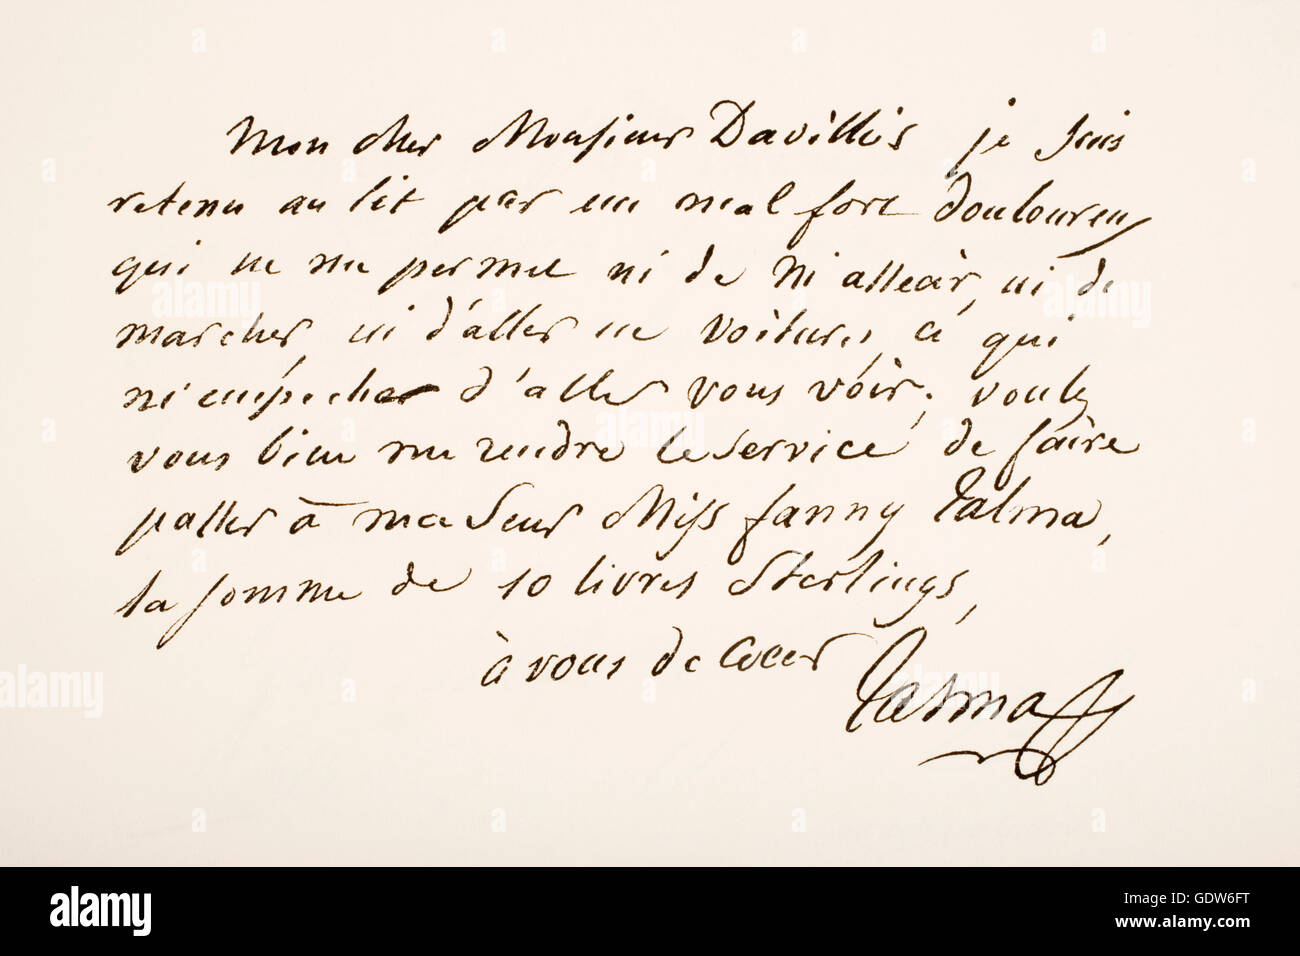 Mon cher Monsieur Davillis je suis
retenu au lit par un mal fort douloureux
qui ne me permet ni de m'asseoir, ni de
marcher, ni d'aller en voiture, ce qui
m'empeche d'aller vous voir; voulez
vous bien me rendre le service de faire
passer à ma Seur Miss fanny Talma,
la somme de 10 livres Sterlings,
à vous de Coeur Talma
alamy
GDW6FT
www.alamy.com